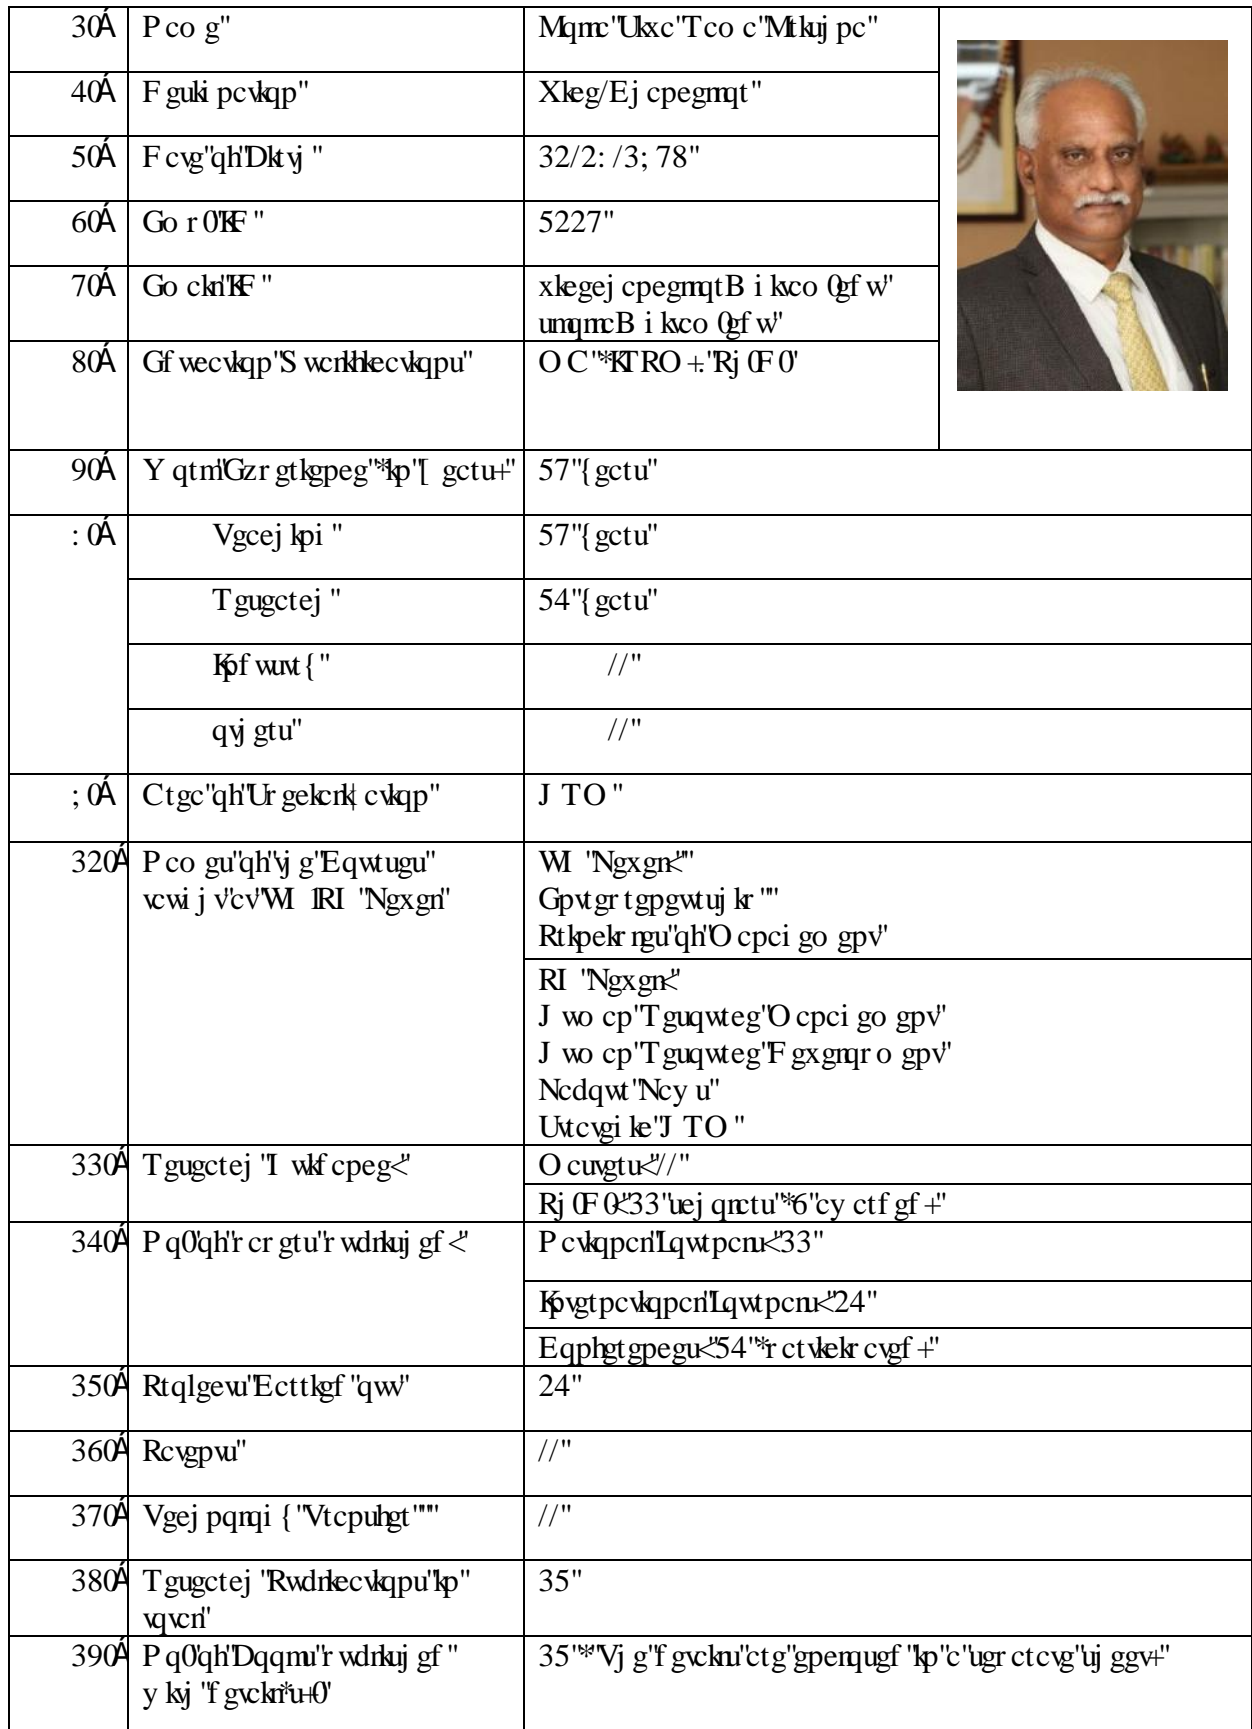 30Á P co g" Mqmc"Ukxc"Tco c"Mtkuj pc"
40Á F guki pcvkqp" Xkeg/Ej cpegmqt"
50Á F cvg"qh"Dktvj " 32/2: /3; 78"
60Á Go r 0'KF " 5227"
70Á Go ckn"KF " xkegej cpegmqtB i kvco 0gf w"
umqmcB i kvco 0gf w"
80Á Gf wecvkqp"S wcnkhkecvkqpu" O C"*KTRO +."Rj 0F 0'
90Á Y qtm'Gzr gtkgpeg"*kp"[ gctu+" 57"{gctu"
: 0Á Vgcej kpi " 57"{gctu"
T gugctej " 54"{gctu"
Kpf wuvt{" //"
qvj gtu" //"
; 0Á Ctgc"qh"Ur gekcnk| cvkqp" J TO "
320Á P co gu"qh"vj g"Eqwtugu"
vcwi j v"cv"WI 1RI "Ngxgn" WI "Ngxgn<"
Gpvtgr tgpgwtuj kr ""
Rtkpekr ngu"qh"O cpci go gpv"
RI "Ngxgn<"
J wo cp"T guqwteg"O cpci go gpv"
J wo cp"T guqwteg"F gxgnqr o gpv"
Ncdqwt"Ncy u"
Uvtcvgi ke"J TO "
330Á T gugctej "I wkf cpeg<" O cuvgtu<//"
Rj 0F 0<33"uej qnctu"*6"cy ctf gf +"
340Á P q0'qh"r cr gtu"r wdnkuj gf <" P cvkqpcn"Lqwtpcnu<33"
Kpvgtpcvkqpcn"Lqwtpcnu<24"
Eqphgtgpegu<54"*r ctvkekr cvgf +"
350Á Rtqlgevu"Ecttkgf "qwv" 24"
360Á Rcvgpvu" //"
370Á Vgej pqnqi { "Vtcpuhgt""" //"
380Á T gugctej "Rwdnkecvkqpu"kp"
vqvcn" 35"
390Á P q0'qh"Dqqmu"r wdnkuj gf "
y kvj "f gvckn*u+0' 35"*"Vj g"f gvcknu"ctg"gpenqugf "kp"c"ugr ctcvg"uj ggv+"